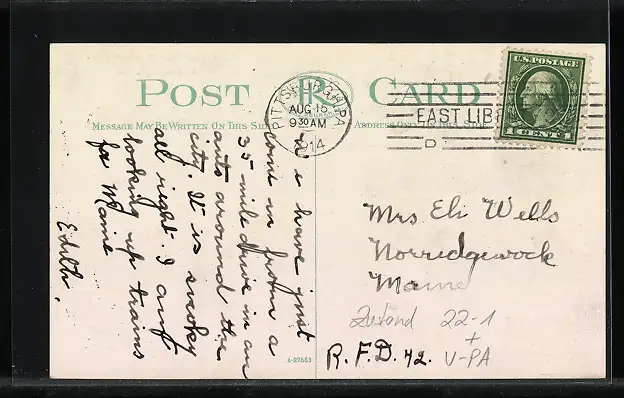 POST CARD
MESSAGE MAY BE WRITTEN ON THIS SIDE
ADDRESS ONLY ON THIS SIDE
PITTSBURGH, PA
AUG 15
9 30 AM
1914
EAST LIB
D
U.S. POSTAGE
1 CENT 1
we have just
come in from a
35 mile drive in an
auto around the
city. It is smoky
all right. I am
looking up trains
for Maine
Edith.
Mrs Eli Wells
Norridgewock
Maine
R.F.D. #2.
Zustand 22-1
+
V-PA
A-27663